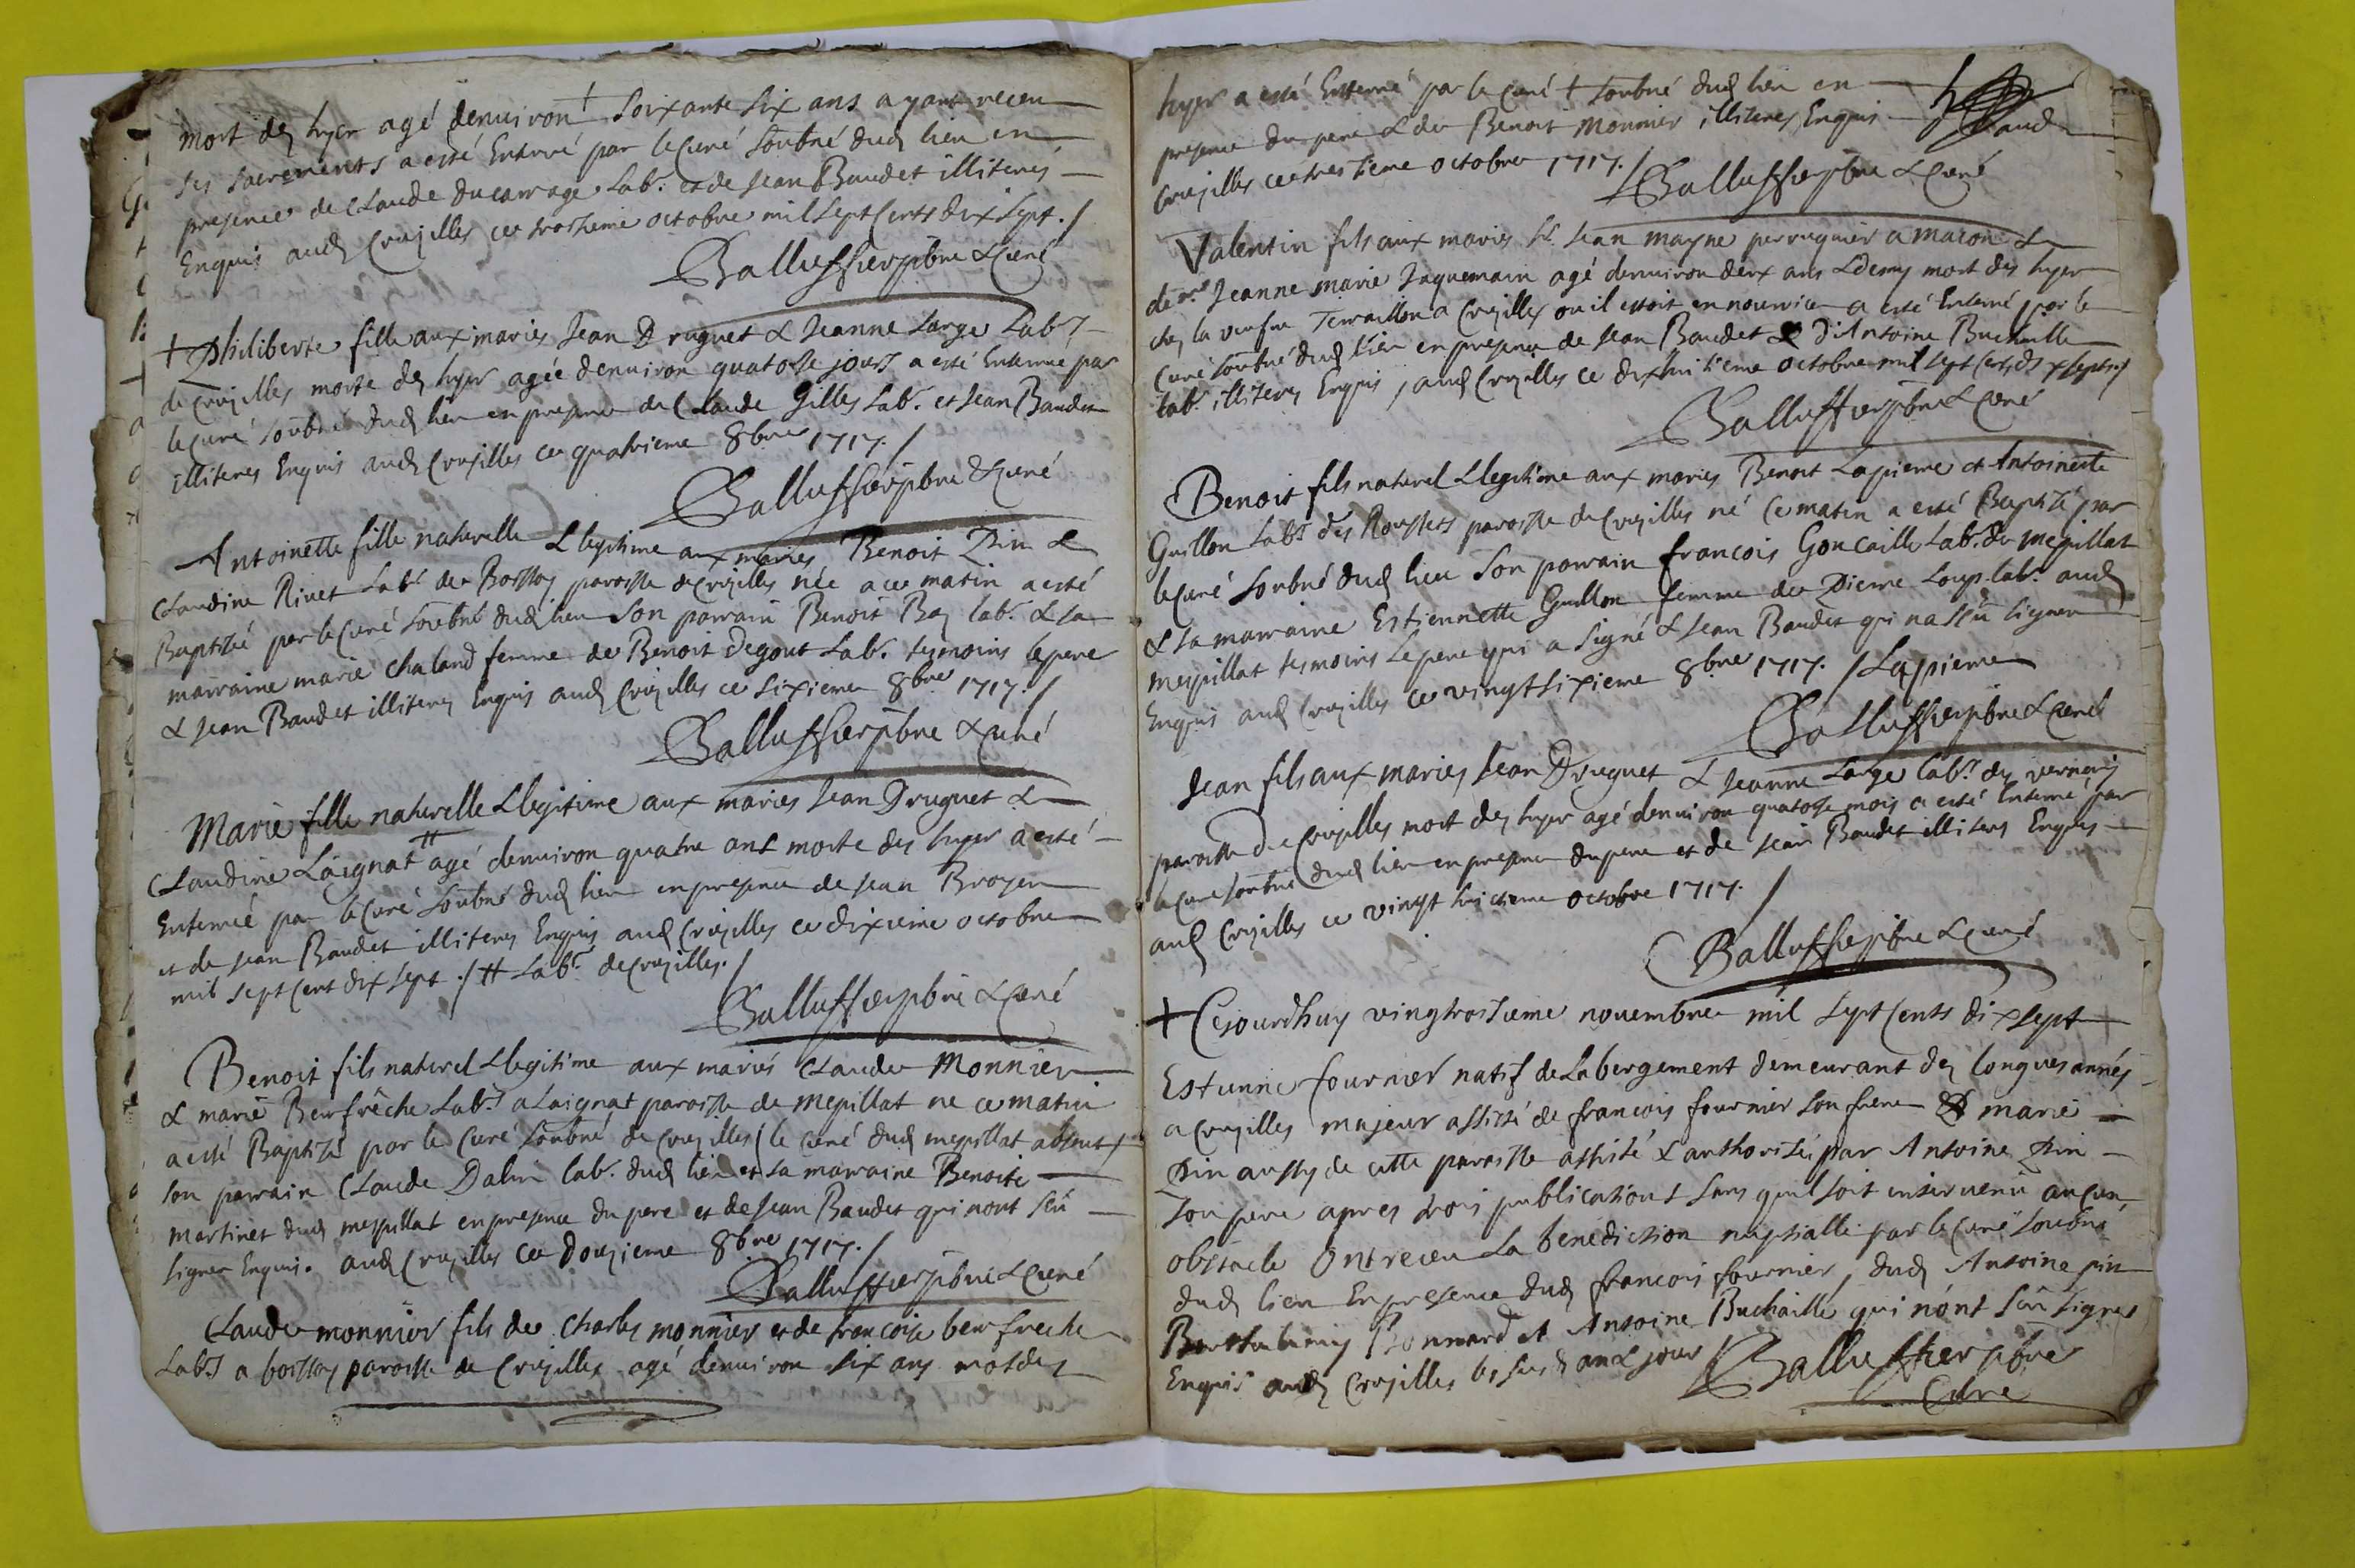 mort des hyer agé denuiron soixante six ans ayant receu
ses sacrements a esté Enterré par le Curé soubné dud lieu en
presence de Claude Ducarrage Lab.r et de Jean Baudet illiteres
Enquis aud Crujilles ce troisieme octobre mil sept Cents dix sept ./
Balluffier pbre & Curé
+ Philiberte fille aux maries Jean Druguet & Jeanne Large Lab.rs
de Crujilles morte des hyer agée denuiron quatorse jours a esté Enterrée par
le Curé soubné dud lieu en presence de Claude Gilles Lab.r et Jean Baudet
illiteres Enquis aud Crujilles ce quatrieme 8bre 1717 ./
Balluffier pbre & Curé
Antoinette fille naturelle & legitime aux maries Benoit Pin &
Claudine Rivet Lab.rs de Boissey paroisse de Crujilles née a ce matin a esté
Baptisée par le Curé soubné dud lieu son parrain Benoit Bey lab.r & sa
marraine marie Chaland femme de Benoit Degout Lab.r tesmoins le pere
& Jean Baudet illiteres Enquis aud Crujilles ce sixieme 8bre 1717 ./
Balluffier pbre & Curé
Marie fille naturelle & legitime aux maries Jean Druguet &
Claudine Laignat # agé denuiron quatre ans morte des hyer a esté
Enterrée par le Curé soubné dud lieu en presence de Jean Broyer
et de Jean Baudet illiteres Enquis aud Crujilles ce dixieme octobre
mil sept Cent dix sept ./ # Lab.rs de Crujilles ./
Balluffier pbre & Curé
Benoit fils naturel & legitime aux mariés Claude Monnier
& marie Berfrêche Lab.rs a Laignat paroisse de Mepillat ne ce matin
a esté Baptisé par le Curé soubné de Crujilles (le curé dud mepillat absent)
son parrain Claude Dalin lab.r dud lieu et sa marraine Benoite
Martinet dud mepillat en presence du pere et de Jean Baudet qui nont sçu
signer Enquis . aud Crujilles ce Douzieme 8bre 1717 ./
Balluffier pbre & Curé
Claude monnier fils de Charles monnier et de francoise berfreche
Lab.rs a boissey paroisse de Crujilles agé denuiron six ans mort des
hyer a esté Enterré par le Curé + soubné dud lieu en
presence du pere & de Benoit Monnier illiteres Enquis aud
Crujilles ce treisieme octobre 1717 ./
Balluffier pbre & Curé
Valentin fils aux maries S.r Jean mayne perruquier a macon &
de.lle Jeanne marie Jaquemain agé denuiron deux ans & demy mort des hyer
chez la veufue Terraillon a Crujilles ou il estoit en nourrice a esté Enterré par le
Curé soubné dud lieu en presence de Jean Baudet & D'Antoine Buchaille
lab.r illiteres Enquis , aud Crujilles ce dix huitieme octobre mil sept Cents dix sept ./
Balluffier pbre & Curé
Benoit fils naturel & legitime aux maries Benoit Lapierre et Antoinette
Guillon Lab.rs des Roussets paroisse de Crujilles né Ce matin a esté Baptisé par
le Curé soubné dud lieu son parrain francois Goncaille Lab.r de mepillat
& sa marraine Estiennette Guillon femme de Pierre Loup lab.r aud
Mepillat tesmoins Le pere qui a signé & Jean Baudet qui na sçu signer
Enquis aud Crujilles ce vingt sixieme 8bre 1717 ./ Lapierre
Balluffier pbre & Curé
Jean fils aux maries Jean Druguet & Jeanne Large lab.rs des vernays
paroisse de Crujilles mort des hyer agé denuiron quatorse mois a esté Enterré par
le Curé soubné dud lieu en presence du pere et de Jean Baudet illiteres Enquis
aud Crujilles ce vingt huictieme octobre 1717 ./
Balluffier pbre & Curé
+ Cejourdhuy vingtroisieme novembre mil sept Cents dix sept
Estienne fournier natif de Labergement demeurant des longues années
a Crujilles majeur assisté de francois fournier son frere & marie
Pin aussy de cette paroisse assisté & authorisée par Antoine Pin
son pere apres trois publications sans quil soit intervenu aucun
obstacle Ont receu La benediction nuptialle par le Curé soubné
dud lieu En presence dud francois fournier, dud Antoine pin
Barthelemy Bonnard et Antoine Buchaille qui nont sçu signer
Enquis aud Crujilles les susd an & jour
Balluffier pbre
Curé